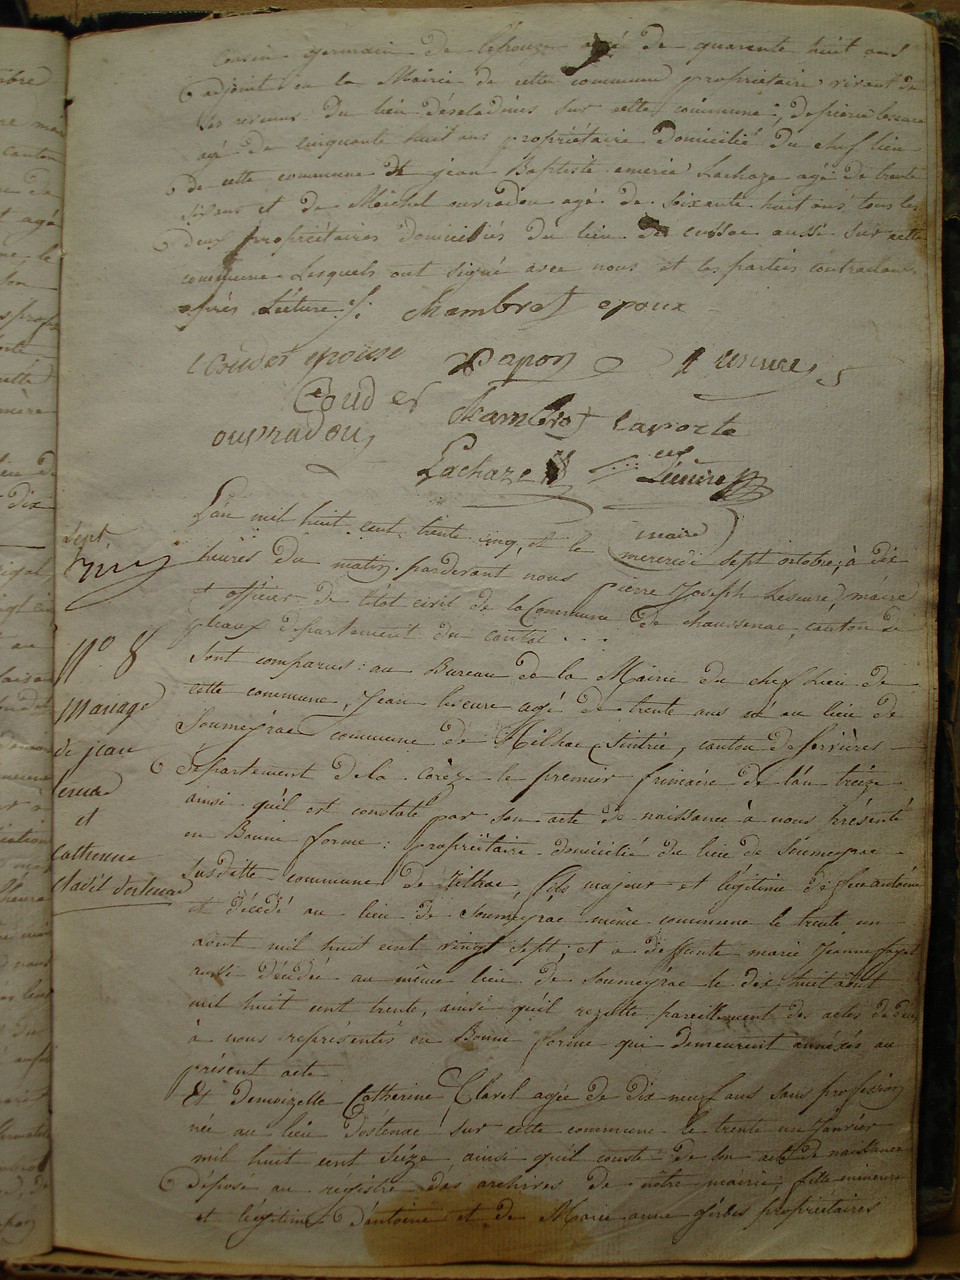 Cousin germain de l'épouze agé de quarente huit ans
adjoint en la Mairie de cette commune propriétaire vivant de
ses revenus du lieu sur cette commune; de pierre lescure
agé de cinquante huit ans propriétaire domicilié du chef lieu
de cette commune de jean Baptiste emerie Lachaze agé de trente
six ans et de Michel ouvradou agé de soixante huit ans, tous les
deux propriétaires domiciliés du lieu de cussac aussi sur cette
commune Lesquels ont signé avec nous et les parties contractantes
après Lecture /. Chambret epoux
Couder epouse Papon
Couder Chambret Laporte
ouvradou
Lachaze Lescure
maire
L'an mil huit cent trente cinq, et le mercredi sept octobre, à dix
heures du matin. pardevant nous pierre Joseph Lescure maire
et officier de l'état civil de la Commune de chaussenac, canton de
pleaux département du cantal . . .
Sont comparus: au Bureau de la Mairie du chef Lieu de
cette commune, Jean lescure agé de trente ans né au lieu de
Soumeyrac commune de Rilhac Xintrie, canton de servières
département de la corèze le premier frimaire de l'an treize
ainsi qu'il est constaté par son acte de naissance à nous présenté
en Bonne forme: propriétaire domicilié du lieu de Soumeyrac
susditte commune de Rilhac, fils majeur et légitime de feu antoine
et décédé au lieu de Soumeyrac même commune le trente un
aout mil huit cent vingt sept; et a deffunte marie Jeanne
aussi décédée au même lieu de Soumeyrac le dix huit août
mil huit cent trente, ainsi qu'il rezulte pareillement des actes de décès
à nous représentés en Bonne forme qui demeurent annéxés au
présent acte
Et demoizelle Catherine Clavel agée de dix neuf ans sans profession
née au lieu d'ostenac sur cette commune le trente un Janvier
mil huit cent seize, ainsi qu'il conste de son acte de naissance
déposé au registre des archives de nôtre mairie, fille mineure
et légitime D'antoine et de Marie anne gerbes propriétaires
Sept
N° 8
Mariage
de jean
lescure
et
Catherine
Clavel